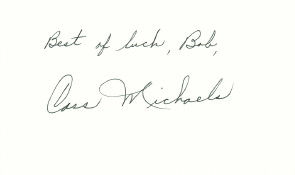 Best of luck, Bob,
Cass Michaels